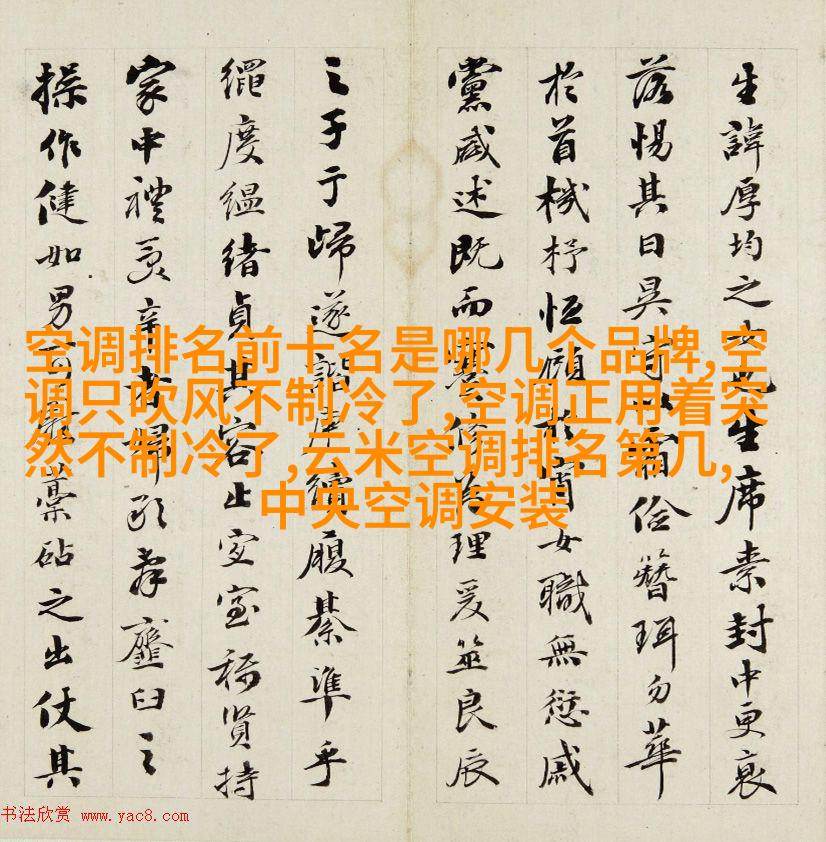 生諱厚均之女也生席素封中更衰
落惕其日儉簪珥勿華
於首機杼恒傾於宵女職無愆戚
黨咸述既而理爰筮良辰
之子于歸遂諧續履綦準乎
繩度縕緒貞其容止室称賢持
家中禮辛臼之
操作健如男藁砧之出仗其
空调排名前十名是哪几个品牌,空
调只吹风不制冷了,空调正用着突
然不制冷了,云米空调排名第几,
中央空调安装
书法欣赏 www.yac8.com